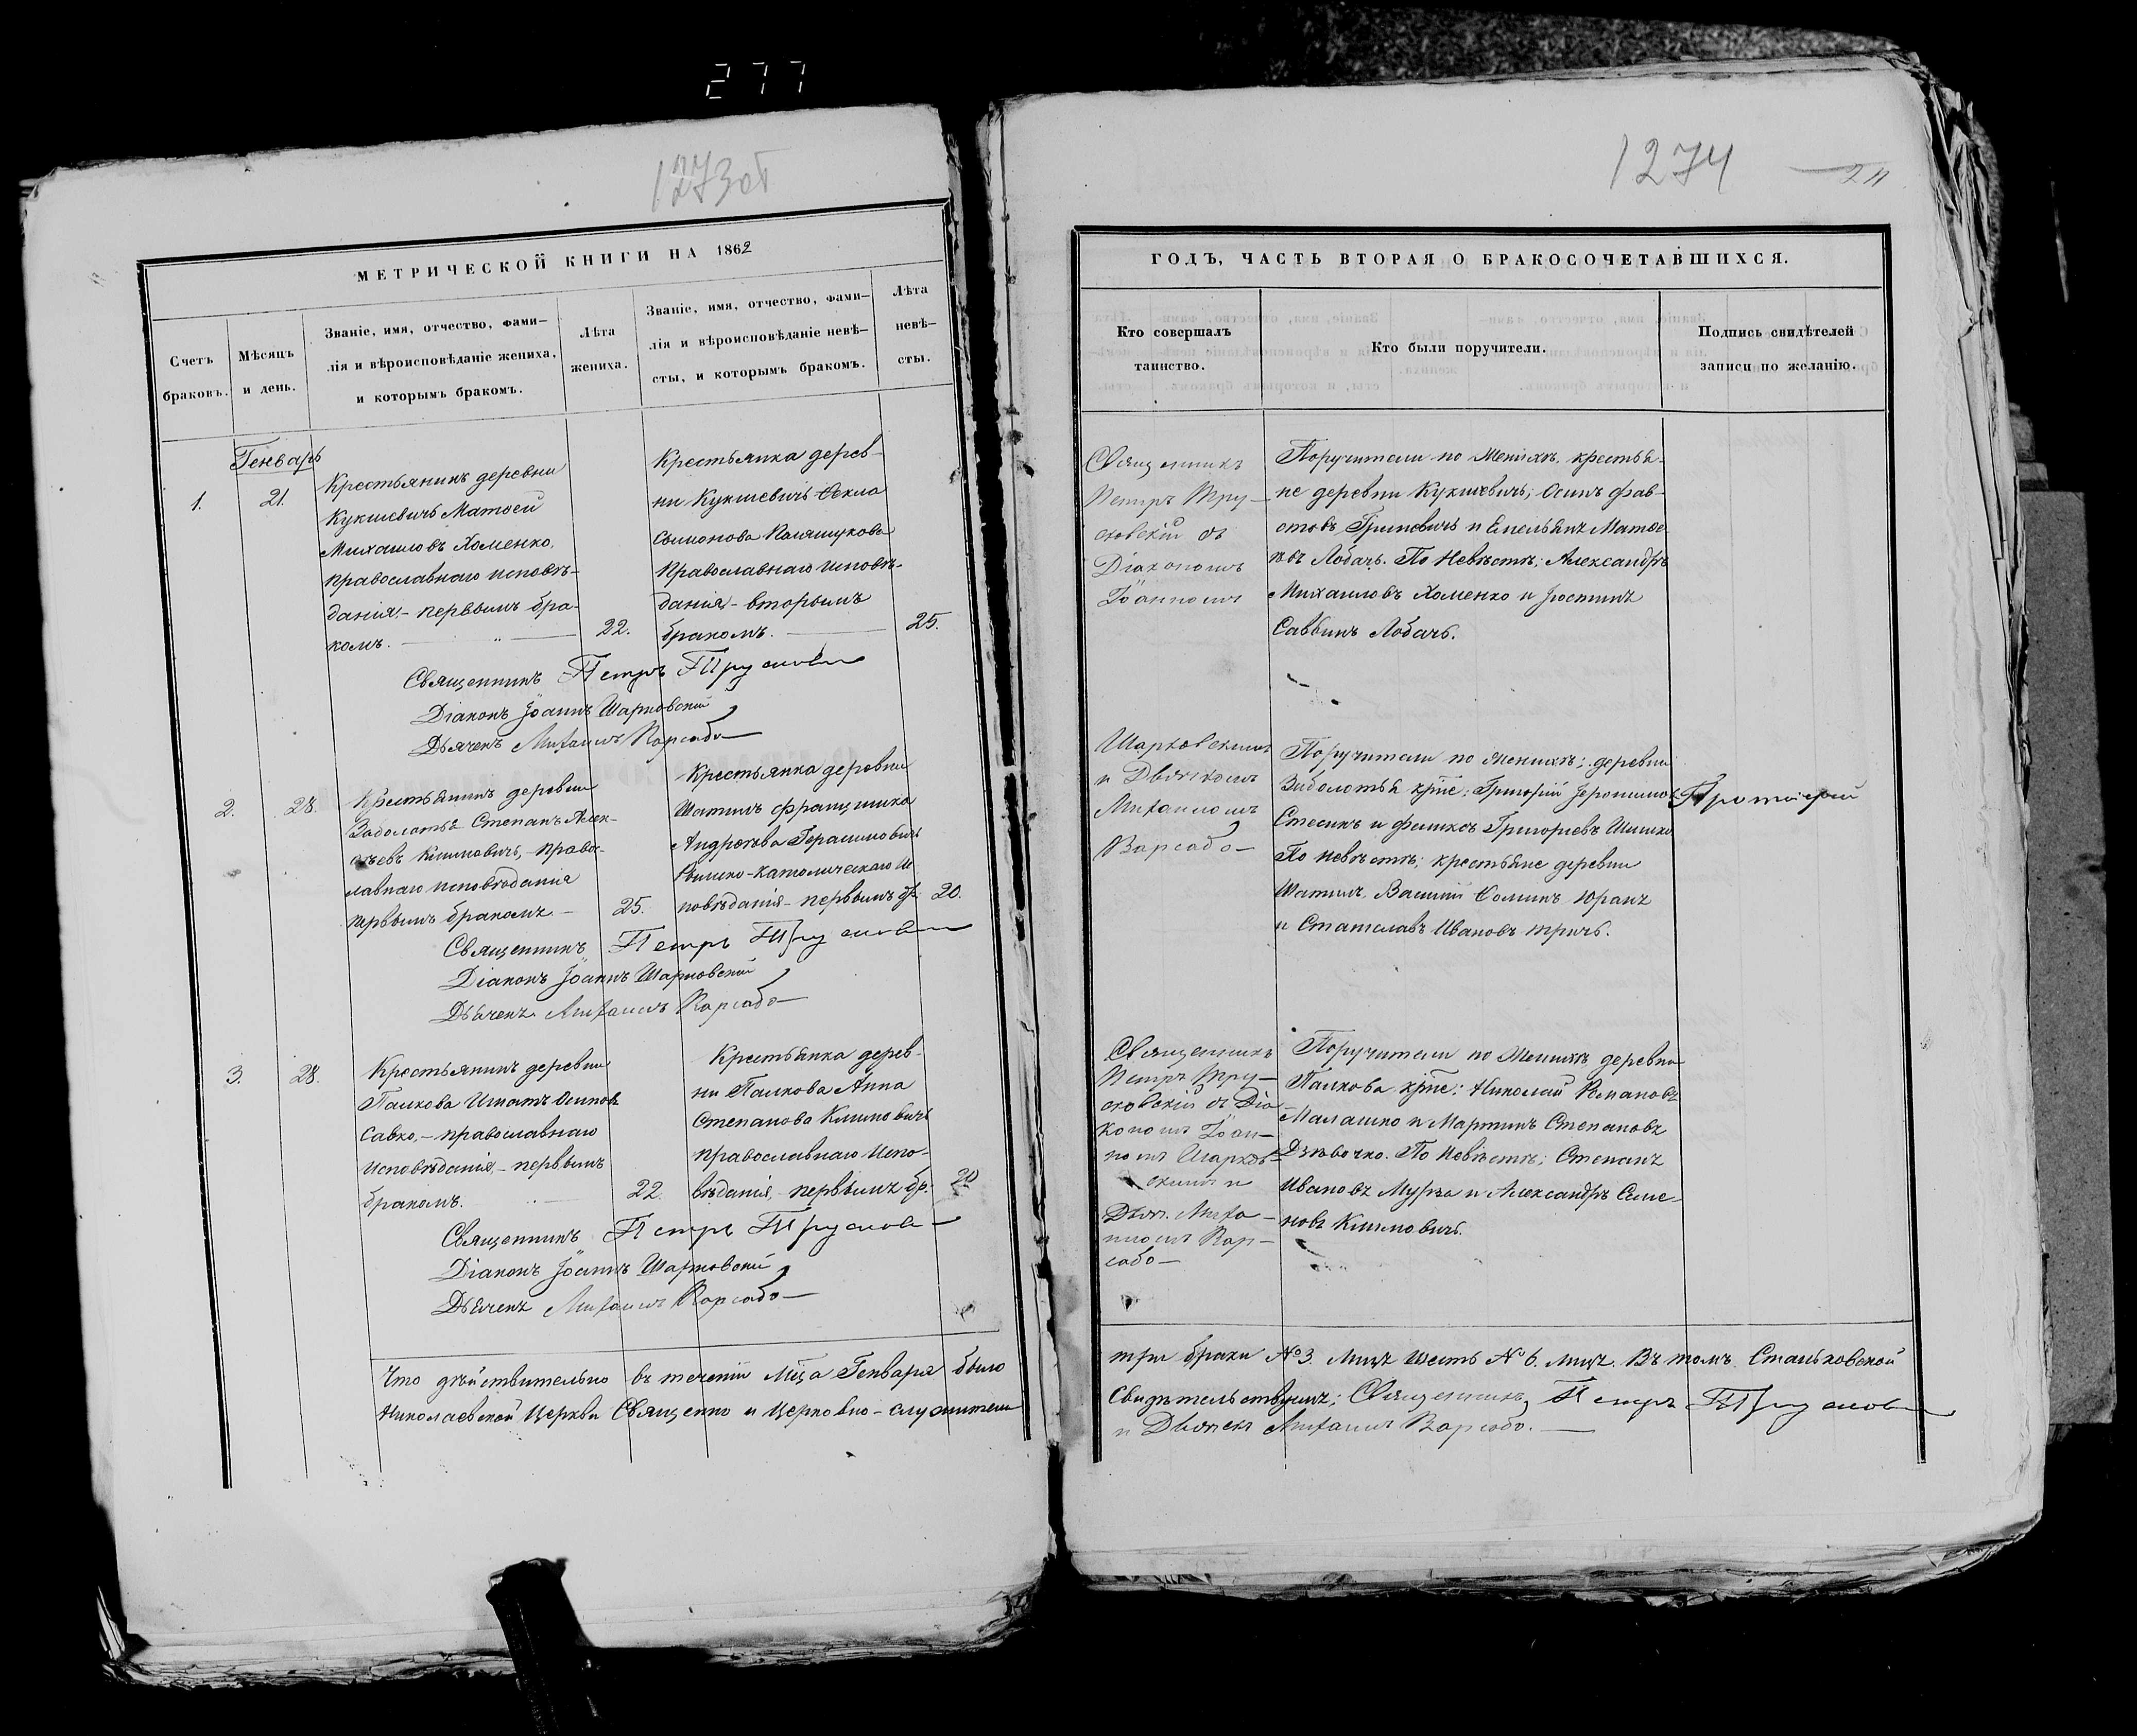 277
1273об
МЕТРИЧЕСКОЙ КНИГИ НА 1862
Счетъ
браковъ.
Мѣсяцъ
и день.
Званіе, имя, отчество, фами-
лія и вѣроисповѣданіе жениха,
и которымъ бракомъ.
Лѣта
жениха.
Званіе, имя, отчество, фами-
лія и вѣроисповѣданіе невѣ-
сты, и которымъ бракомъ.
Лѣта
невѣ-
сты.
Генварь
1.
21.
Крестьянинъ деревни
Кукшевичь Матѳей
Михаиловъ Хоменко,
православнаго исповѣ-
данія, - первымъ бра-
комъ.
22.
Крестьянка дерев-
ни Кукшевичь Ѳекла
Симонова
Православнаго исповѣ-
данія - вторымъ
бракомъ.
25.
Священникъ Петръ
Діаконъ Іоаннъ Шарковскій
Дьячекъ Михаилъ Варсабо
2.
28.
Крестьянинъ деревни
Заболотья Степанъ Алек-
сѣевъ Климовичь, - право-
славнаго исповѣданія
первымъ бракомъ -
25.
Крестьянка деревни
Шатилъ Францишка
Андреева Герасимовичь
Римско-католическаго и
повѣданія - первымъ бр.
20.
Священникъ Петръ
Діаконъ Іоаннъ Шарковскій
Дьячекъ Михаилъ Варсабо
3.
28.
Крестьянинъ деревни
Палкова Игнатъ Осиповъ
Савко, - православнаго
исповѣданія, - первымъ
бракомъ.
22.
Крестьянка дерев-
ни Палкова Анна
Степанова Климовичь
православнаго испо-
вѣданія, - первымъ бр.
20
Священникъ Петръ
Діаконъ Іоаннъ Шарковскій
Дьячекъ Михаилъ Варсабо
Что дѣйствительно въ теченіи Мца Генваря было
Николаевской Церкви Священно и Церковно-служители
1274
24
ГОДЪ, ЧАСТЬ ВТОРАЯ О БРАКОСОЧЕТАВШИХСЯ.
Кто совершалъ
таинство.
Кто были поручители.
Подпись свидѣтелей
записи по желанію.
Священникъ
Петръ Тру-
сковскій съ
Діакономъ
Іоанномъ
Поручители по Женихѣ, крестья-
не деревни Кукшевичь; Осипъ
Гриневичь и Емельянъ Матѳе-
евъ Лобачь. По Невѣстѣ; Александръ
Михаиловъ Хоменко и Іустинъ
Саввинъ Лобачь.
Шарковскимъ
и Дьячкомъ
Михаиломъ
Варсабо
Поручители по Женихѣ; деревни
Заболотья крте: Григорій Іеронимовъ
Стесикъ и Феликсъ Григорьевъ Шишко
По невѣстѣ; крестьяне деревни
Шатилъ, Василій Ѳоминъ Юранъ
и Станиславъ Ивановъ
Священникъ
Петръ Тру-
сковскій съ Діа-
кономъ Іоан-
номъ Шарков-
скимъ и
Дьяч. Миха-
иломъ Вар-
сабо
Поручители по Женихѣ деревни
Палкова крте: Николай Романовъ
Малашко и Мартинъ Степановъ
Дзѣвочко. По Невѣстѣ; Степанъ
Ивановъ Мурза и Александръ Семе-
новъ Климовичь.
три браки №3. лицъ шесть №6. лицъ. Въ томъ Станьковской
Свидѣтельствуемъ; Священникъ Петръ
и Дьячекъ Михаилъ Варсабо.